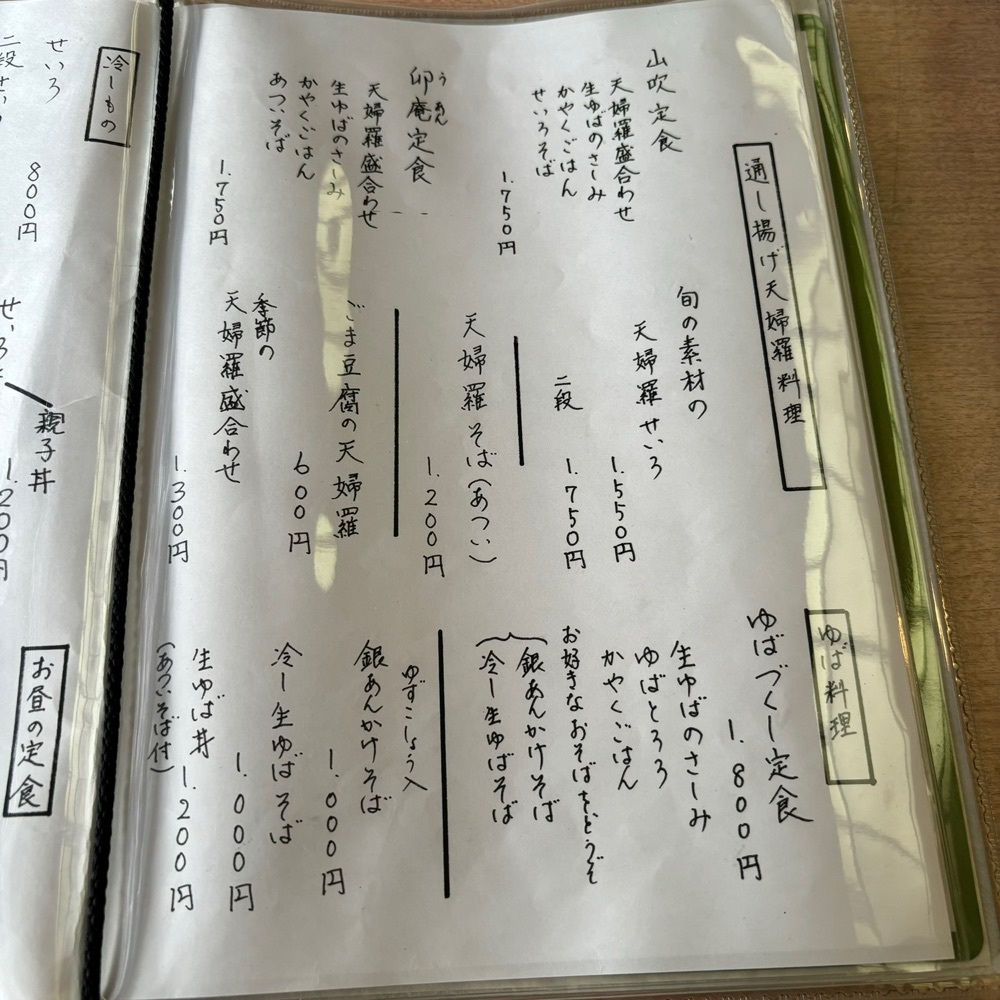 通し揚げ天婦羅料理
山吹定食
天婦羅盛合わせ
生ゆばのさしみ
かやくごはん
せいろそば
1.750円
うあん
卯庵定食
天婦羅盛合わせ
生ゆばのさしみ
かやくごはん
あついそば
1.750円
旬の素材の
天婦羅せいろ
1.550円
二段
1.750円
天婦羅そば(あつい)
1.200円
ごま豆腐の天婦羅
600円
季節の
天婦羅盛合わせ
1.300円
ゆば料理
ゆばづくし定食
1.800円
生ゆばのさしみ
ゆばとろろ
かやくごはん
お好きなおそばをどうぞ
銀あんかけそば
冷し生ゆばそば
ゆずこしょう入
銀あんかけそば
1.000円
冷し生ゆばそば
1.000円
生ゆば丼
1.200円
(あついそば付)
冷しもの
せいろ
800円
二段せい
せいろと
親子丼
1.200円
お昼の定食